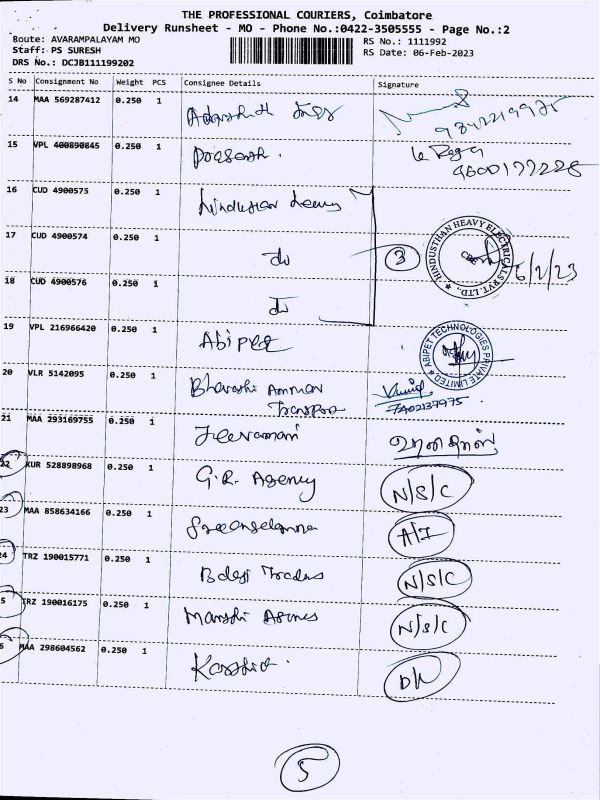 THE PROFESSIONAL COURIERS, Coimbatore
Delivery Runsheet - MO - Phone No.:0422-3505555 - Page No.:2
Route: AVARAMPALAYAM MO
RS No.: 1111992
Staff: PS SURESH
RS Date: 06-Feb-2023
DRS No.: DCJB111199202
S No Consignment No Weight PCS Consignee Details Signature
14 MAA 569287412 0.250 1
15 VPL 400890845 0.250 1 Prasanth.
9600177228
16 CUD 4900575 0.250 1 Hindustan Heavy
17 CUD 4900574 0.250 1 do 3 HINDUSTHAN HEAVY ELECTRICALS PVT. LTD., 6/2/23
18 CUD 4900576 0.250 1 do
19 VPL 216966420 0.250 1 Abipet ABIPET TECHNOLOGIES PRIVATE LIMITED
20 VLR 5142095 0.250 1 Bharathi Amman
7402137975
21 MAA 293169755 0.250 1 Jeevamani
22 KUR 528898968 0.250 1 G.R. Agency N/S/C
23 MAA 858634166 0.250 1 A/I
24 TRZ 190015771 0.250 1 Balaji Traders N/S/C
5 TRZ 190016175 0.250 1 N/S/C
6 MAA 298604562 0.250 1 Karthik. DL
5